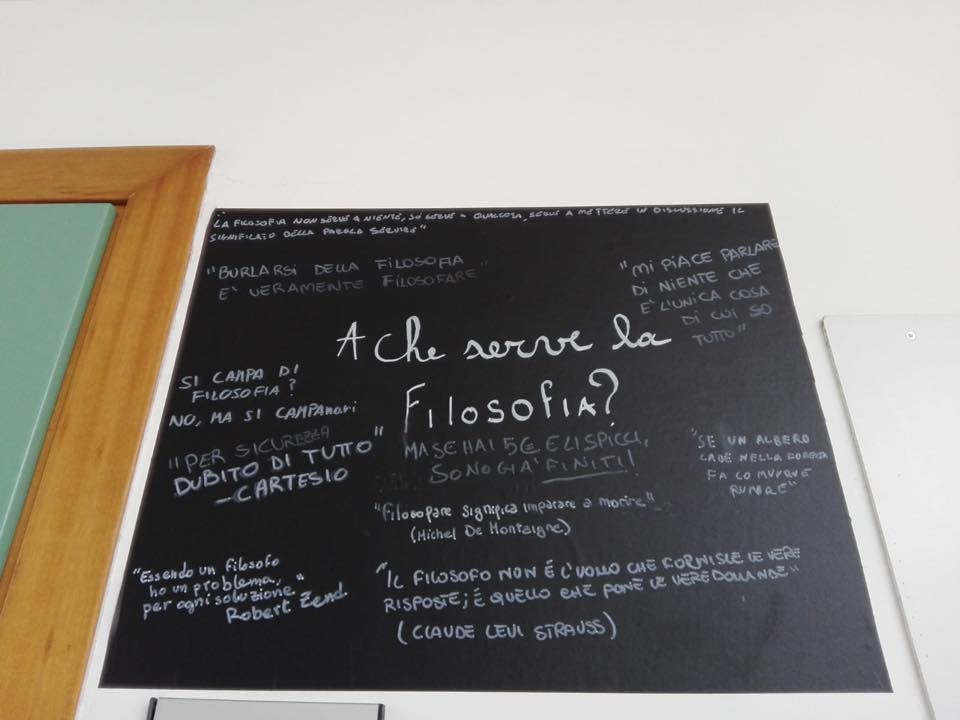 "LA FILOSOFIA NON SERVE A NIENTE, SE SERVE A QUALCOSA, SERVE A METTERE IN DISCUSSIONE IL
SIGNIFICATO DELLA PAROLA SERVIRE"
"BURLARSI DELLA FILOSOFIA
E' VERAMENTE FILOSOFARE"
"MI PIACE PARLARE
DI NIENTE CHE
E' L'UNICA COSA
DI CUI SO
TUTTO"
A che serve la
FILOSOFIA?
SI CAMPA DI
FILOSOFIA?
NO, MA SI CAMPANari
"PER SICUREZZA
DUBITO DI TUTTO"
-CARTESIO
MA SE HAI 5€ E LI SPICCI,
SONO GIA' FINITI!
"SE UN ALBERO
CADE NELLA FORESTA
FA COMUNQUE
RUMORE"
"Filosofare significa imparare a morire"
(Michel De Montaigne)
"Essendo un filosofo
ho un problema,
per ogni soluzione."
Robert Zend.
"IL FILOSOFO NON É L'UOMO CHE FORNISCE LE VERE
RISPOSTE; É QUELLO CHE PONE LE VERE DOMANDE"
(CLAUDE LEVI STRAUSS)